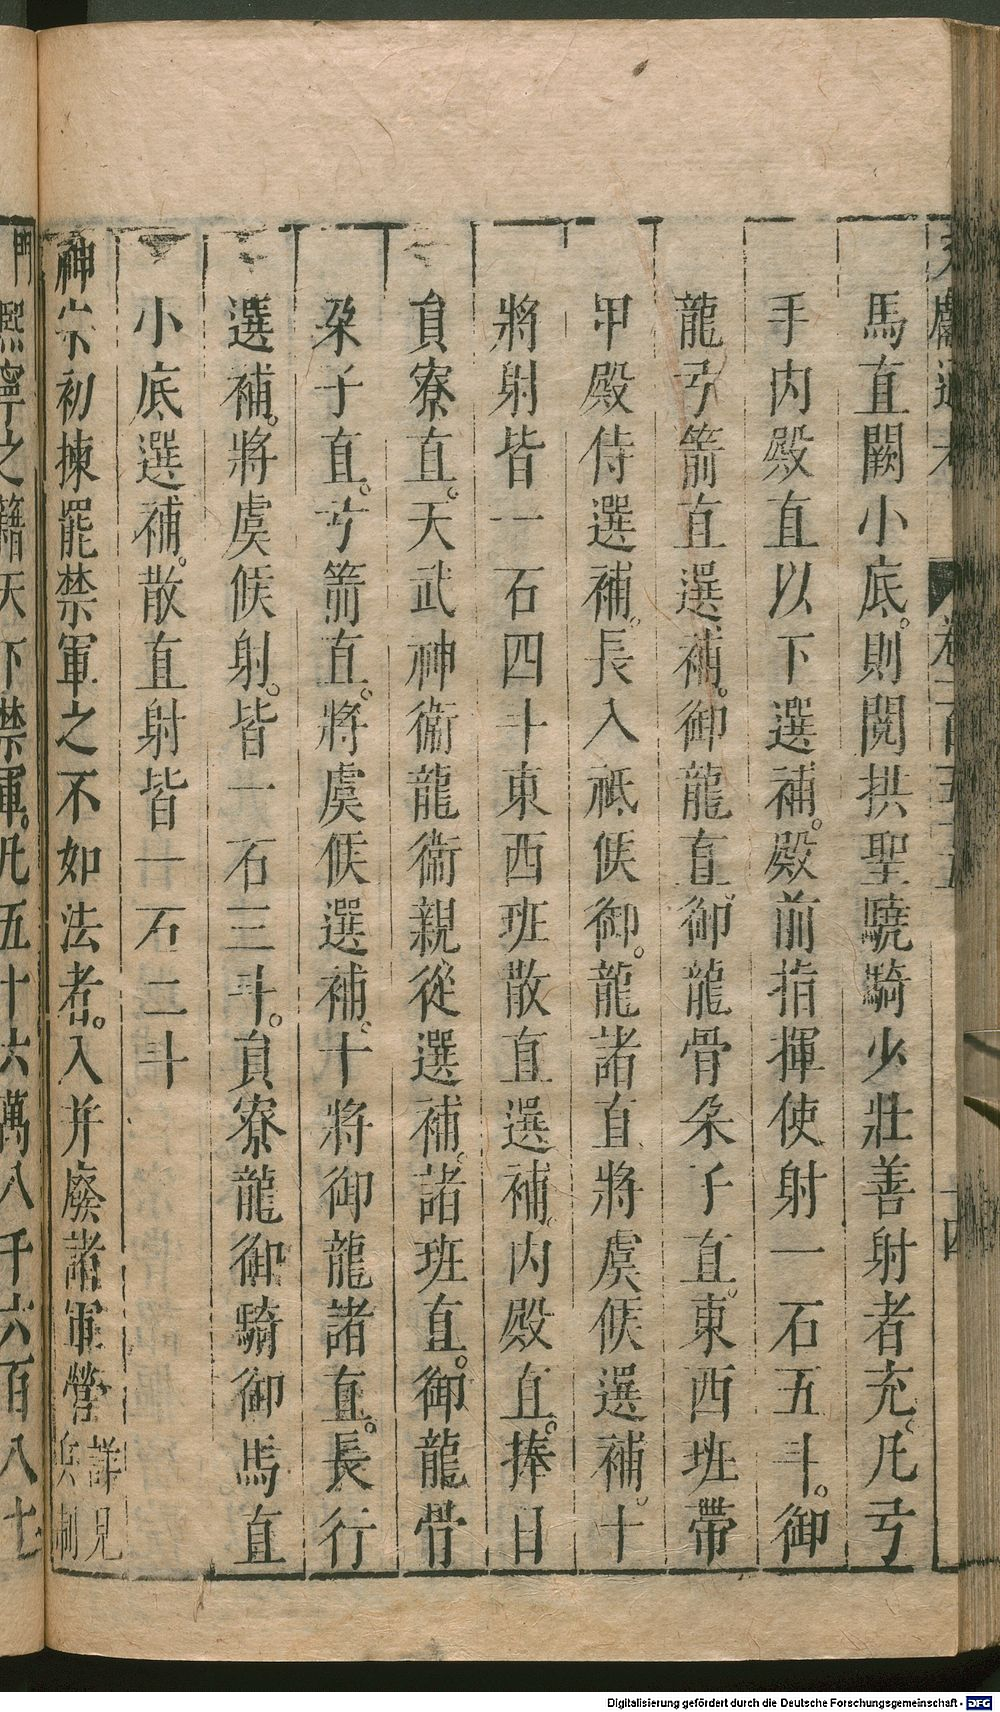 文獻通考 卷一百五十五 十四
馬直闕小底。則閱拱聖驍騎少壯善射者充。凡弓
手內殿直以下選補。殿前指揮使射一石五斗。御
龍弓箭直選補。御龍直。御龍骨朶子直。東西班帶
甲殿侍選補。長入祗候御。龍諸直將虞候選補。十
將射皆一石四斗東西班散直選補。內殿直。捧日
員寮直。天武神衞龍衞親從選補。諸班直。御龍骨
朶子直。弓箭直。將虞候選補。十將御龍諸直。長行
選補。將虞候射。皆一石三斗。員寮龍御騎御馬直
小底選補。散直射皆一石二斗
神宗初揀罷禁軍之不如法者。入并廢諸軍營詳見兵制
門熙寧之籍天下禁軍。凡五十六萬八千六百八七
Digitalisierung gefördert durch die Deutsche Forschungsgemeinschaft - DFG